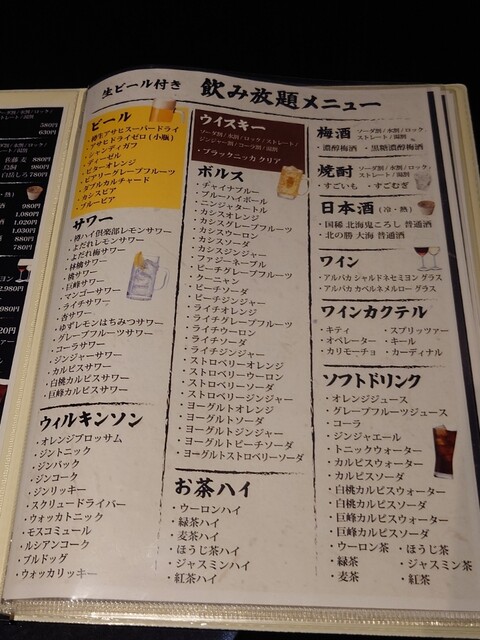 生ビール付き 飲み放題メニュー
ビール
・樽生アサヒスーパードライ
・アサヒドライゼロ(小瓶)
・シャンディガフ
・ディーゼル
・ビターオレンジ
・ビアリーグレープフルーツ
・ダブルカルチャード
・カシスビア
・ブルービア
サワー
・樽ハイ倶楽部レモンサワー
・よだれレモンサワー
・よだれ梅サワー
・林檎サワー
・桃サワー
・巨峰サワー
・マンゴーサワー
・ライチサワー
・杏サワー
・ゆずレモンはちみつサワー
・グレープフルーツサワー
・コーラサワー
・ジンジャーサワー
・カルピスサワー
・白桃カルピスサワー
・巨峰カルピスサワー
ウィルキンソン
・オレンジブロッサム
・ジントニック
・ジンバック
・ジンコーク
・ジンリッキー
・スクリュードライバー
・ウォッカトニック
・モスコミュール
・ルシアンコーク
・ブルドッグ
・ウォッカリッキー
ウイスキー
ソーダ割/水割/ロック/ストレート/
ジンジャー割/コーラ割/湯割
・ブラックニッカ クリア
ボルス
・チャイナブルー
・ブルーハイボール
・ニンジャタートル
・カシスオレンジ
・カシスグレープフルーツ
・カシスウーロン
・カシスソーダ
・カシスジンジャー
・ファジーネーブル
・ピーチグレープフルーツ
・クーニャン
・ピーチソーダ
・ピーチジンジャー
・ライチオレンジ
・ライチグレープフルーツ
・ライチウーロン
・ライチソーダ
・ライチジンジャー
・ストロベリーオレンジ
・ストロベリーウーロン
・ストロベリーソーダ
・ストロベリージンジャー
・ヨーグルトオレンジ
・ヨーグルトソーダ
・ヨーグルトジンジャー
・ヨーグルトピーチソーダ
・ヨーグルトストロベリーソーダ
お茶ハイ
・ウーロンハイ
・緑茶ハイ
・麦茶ハイ
・ほうじ茶ハイ
・ジャスミンハイ
・紅茶ハイ
梅酒 ソーダ割/水割/ロック
/ストレート/湯割
・濃醇梅酒 ・黒糖濃醇梅酒
焼酎 ソーダ割/水割/ロック
/ストレート/湯割
・すごいも ・すごむぎ
日本酒(冷・熱)
・国稀 北海鬼ころし 普通酒
・北の勝 大海 普通酒
ワイン
・アルパカ シャルドネセミヨン グラス
・アルパカ カベルネメルロー グラス
ワインカクテル
・キティ ・スプリッツァー
・オペレーター ・キール
・カリモーチョ ・カーディナル
ソフトドリンク
・オレンジジュース
・グレープフルーツジュース
・コーラ
・ジンジャエール
・トニックウォーター
・カルピスウォーター
・カルピスソーダ
・白桃カルピスウォーター
・白桃カルピスソーダ
・巨峰カルピスウォーター
・巨峰カルピスソーダ
・ウーロン茶 ・ほうじ茶
・緑茶 ・ジャスミン茶
・麦茶 ・紅茶